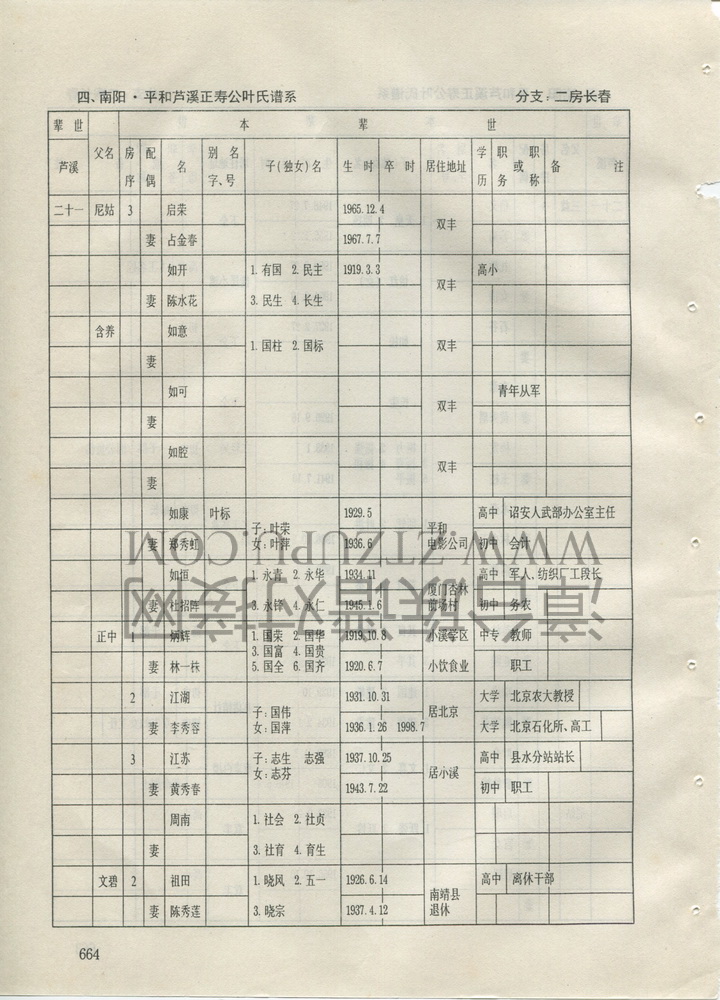 四、南阳·平和芦溪正寿公叶氏谱系 分支：二房长春
辈世 本 辈 世
芦溪 父名 房序 配偶 名 别名字、号 子(独女)名 生时 卒时 居住地址 学历 职务或职称 备注
二十一 尼姑 3 启荣 1965.12.4 双丰
妻 占金春 1967.7.7
如开 1.有国 2.民主 1919.3.3 双丰 高小
妻 陈水花 3.民生 4.长生
含养 如意 1.国柱 2.国标 双丰
妻
如可 双丰 青年从军
妻
如腔 双丰
妻
如康 叶标 子:叶荣 1929.5 平和 高中 诏安人武部办公室主任
妻 郑秀虹 女:叶萍 1936.6 电影公司 初中 会计
如恒 1.永青 2.永华 1934.11 厦门杏林 高中 军人.纺织厂工段长
妻 杜招阵 3.永锋 4.永仁 1945.1.6 前场村 初中 务农
正中 1 炳辉 1.国荣 2.国华 1919.10.8 小溪学区 中专 教师
3.国富 4.国贵
妻 林一株 5.国全 6.国齐 1920.6.7 小饮食业 职工
2 江湖 子:国伟 1931.10.31 居北京 大学 北京农大教授
妻 李秀容 女:国萍 1936.1.26 1998.7 大学 北京石化所、高工
3 江苏 子:志生 志强 1937.10.25 居小溪 高中 县水分站站长
女:志芬
妻 黄秀春 1943.7.22 初中 职工
周南 1.社会 2.社贞
妻 3.社育 4.育生
文碧 2 祖田 1.晓风 2.五一 1926.6.14 南靖县 高中 离休干部
妻 陈秀莲 3.晓宗 1937.4.12 退休
664
漳台族谱对接网
WWW.ZTZUPU.COM